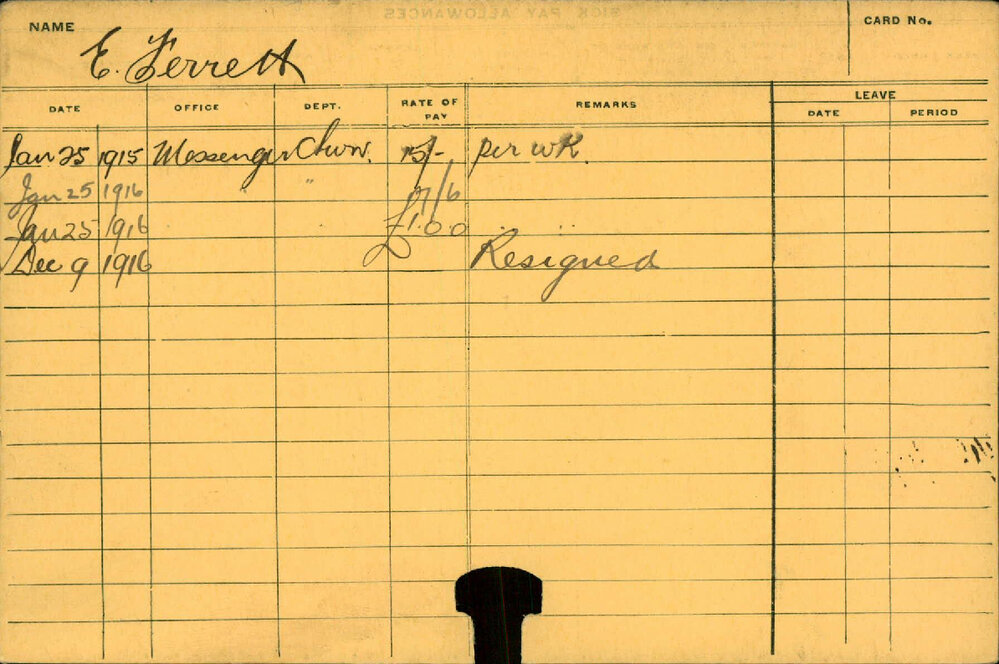 SICK PAY ALLOWANCES
NAME E. Ferrett CARD No.
DATE OFFICE DEPT. RATE OF PAY REMARKS LEAVE
DATE PERIOD
Jan 25 1915 Messenger 15/- per wk.
Jan 25 1916 " " 17/6
Jan 25 1916 £1.0.0 " "
Dec 9 1916 Resigned